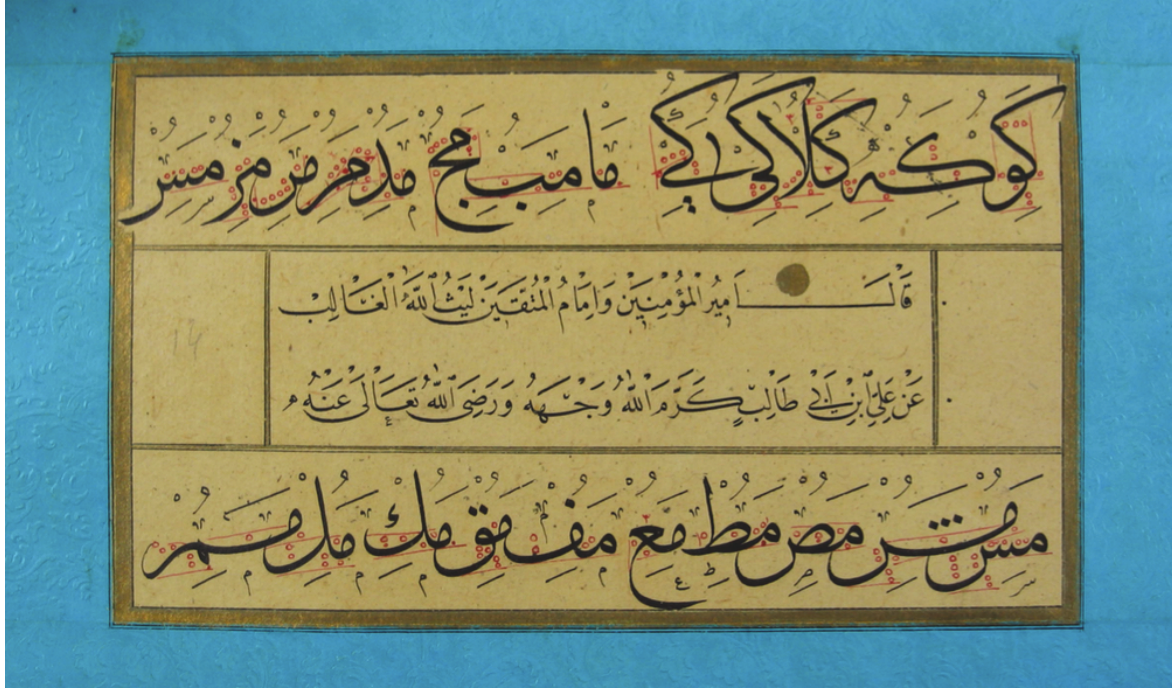 كو كه كلا كى كے ما مب مج مد مر مر مز مس
قَالَ اَمِيرُ الْمُؤْمِنِينَ وَاِمَامُ الْمُتَّقِينَ لَيْثُ اللّٰهِ الْغَالِبْ
عَنْ عَلِيِّ ابْنِ اَبِي طَالِبٍ كَرَّمَ اللّٰهُ وَجْهَهُ وَرَضِيَ اللّٰهُ تَعَالٰى عَنْهُ م
مس مش مص مط مع مف مق مك مل مم